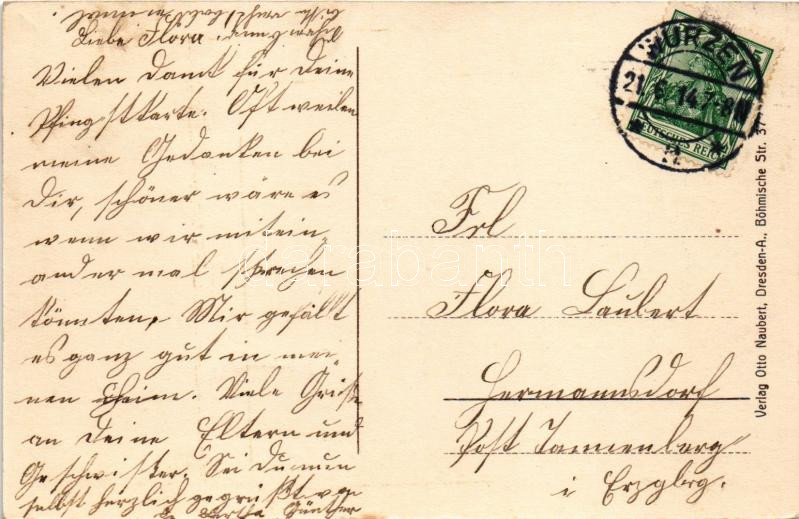 Liebe Flora.
Vielen Dank für Deine
Pfingstkarte. Oft weilen
meine Gedanken bei
Dir, schöner wäre es
wenn wir mitein-
ander mal sprechen
könnten. Mir gefällt
es ganz gut in mei-
nen Heim. Viele Grüße
an Deine Eltern und
Geschwister. Sei Du nun
selbst herzlich gegrüßt von
Günther
WURZEN
21.6.14.7-8N
* 2. *
DEUTSCHES REICH
5
Frl
Flora Laubert
Hermannsdorf
Post Tannenberg
i Erzgbg.
Verlag Otto Naubert, Dresden-A., Böhmische Str. 37
darabanth